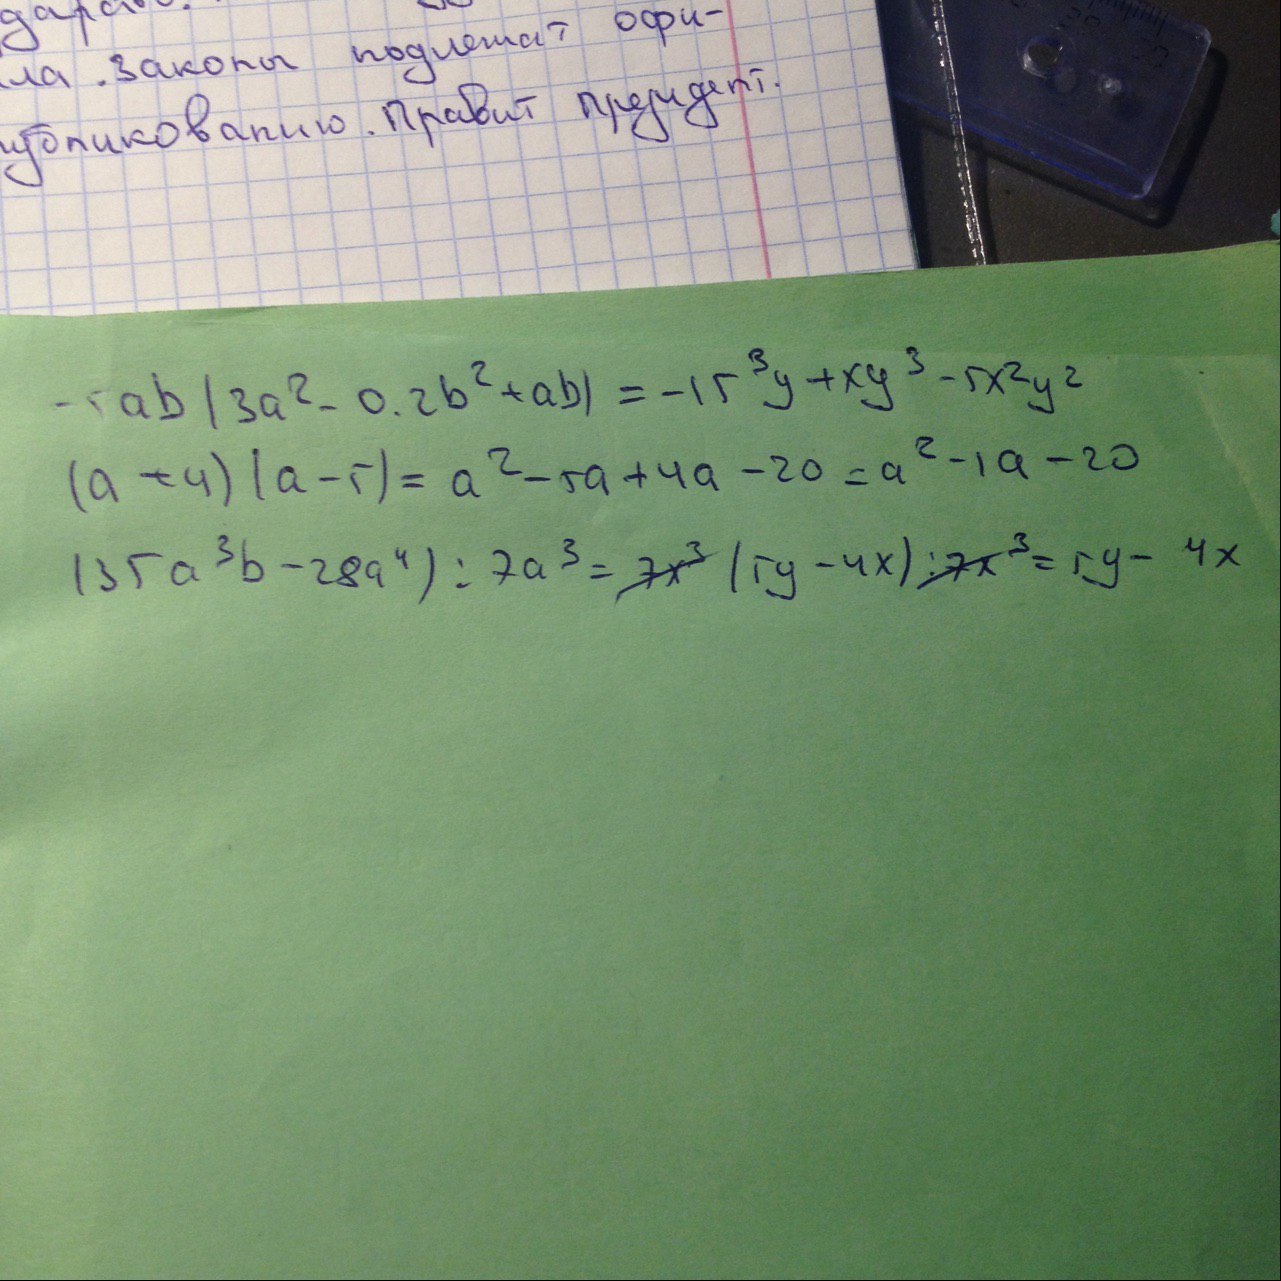 ла. Законы подлежат офи-
убликованию. Правит президент.
-5ab(3a²-0.2b²+ab)=-15³y+xy³-5x²y²
(a+4)(a-5)=a²-5a+4a-20=a²-1a-20
(35a³b-28a⁴):7a³=7x³(5y-4x):7x³=5y-4x